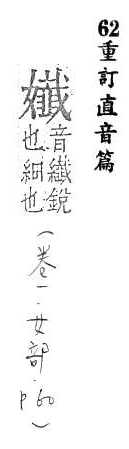 62重訂直音篇
孅
音纖銳
也細也
(卷一·女部·P60)